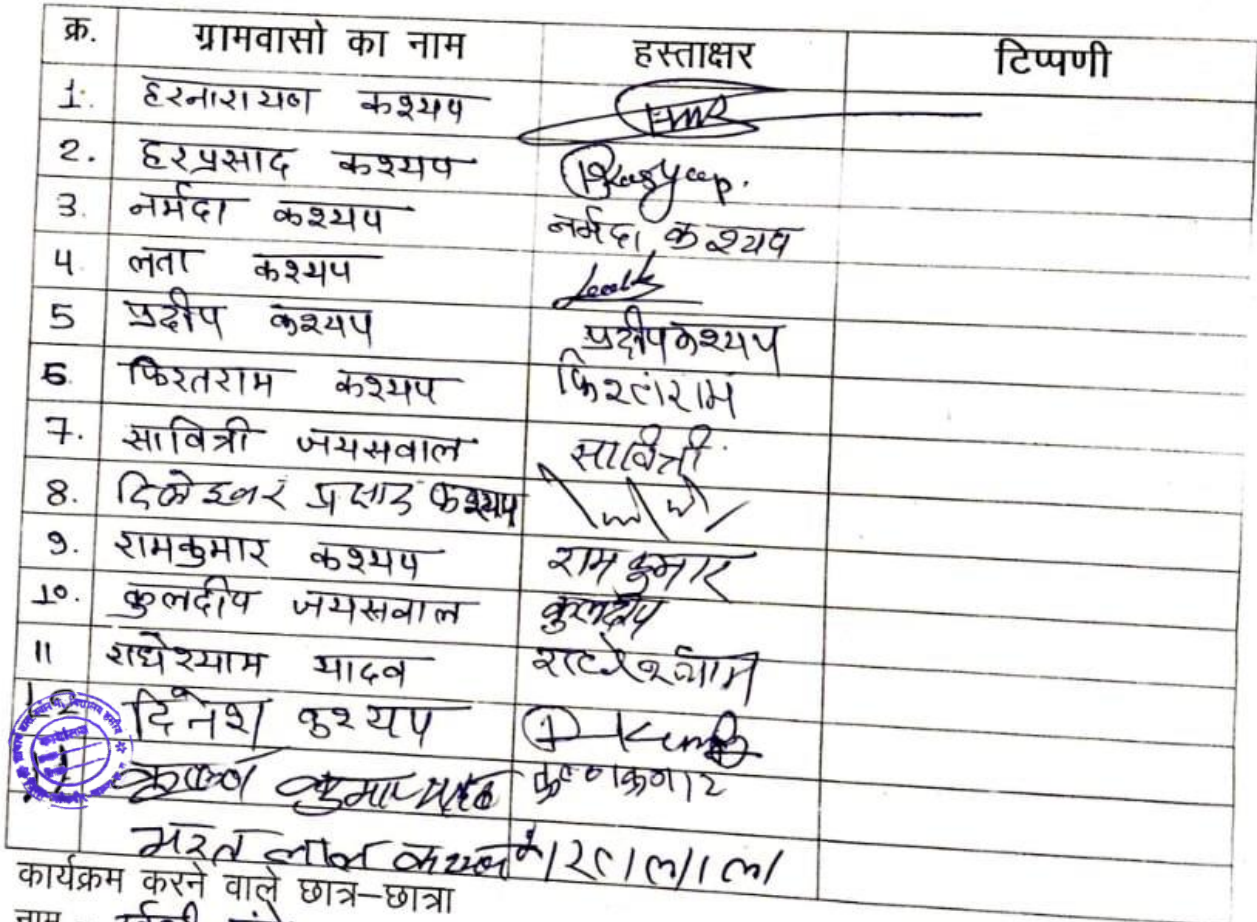 क्र. ग्रामवासो का नाम हस्ताक्षर टिप्पणी
1. हरनारायण कश्यप
2. हरप्रसाद कश्यप Kashyap.
3. नर्मदा कश्यप नर्मदा कश्यप
4 लता कश्यप
5 प्रदीप कश्यप प्रदीप कश्यप
6. फिरतराम कश्यप फिरतराम
7. सावित्री जयसवाल सावित्री
8. प्रसाद कश्यप
9. रामकुमार कश्यप राम कुमार
10. कुलदीप जयसवाल कुलदीप
11 राधेश्याम यादव राधेश्याम
12 दिनेश कश्यप
कृष्ण कुमार कृष्णकुमार
भरत लाल कश्यप भरतलाल
कार्यक्रम करने वाले छात्र–छात्रा
नाम